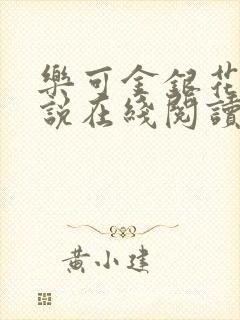 樂可金銀花
說在綫閱讀
黃小建